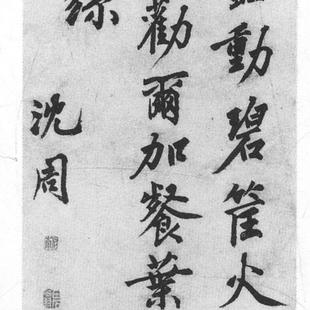 動碧筐火
勸爾加餐葉
沈周